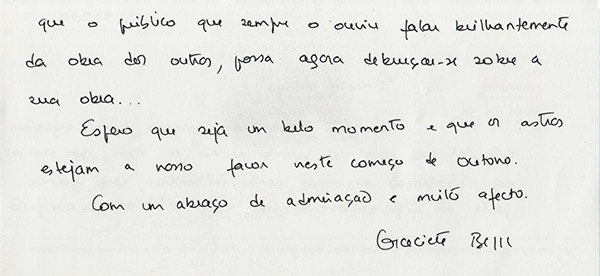 que o público que sempre o ouviu falar brilhantemente
da obra dos outros, possa agora debruçar-se sobre a
sua obra...
Espero que seja um belo momento e que os astros
estejam a nosso favor neste começo de outono.
Com um abraço de admiração e muito afecto.
Graciete